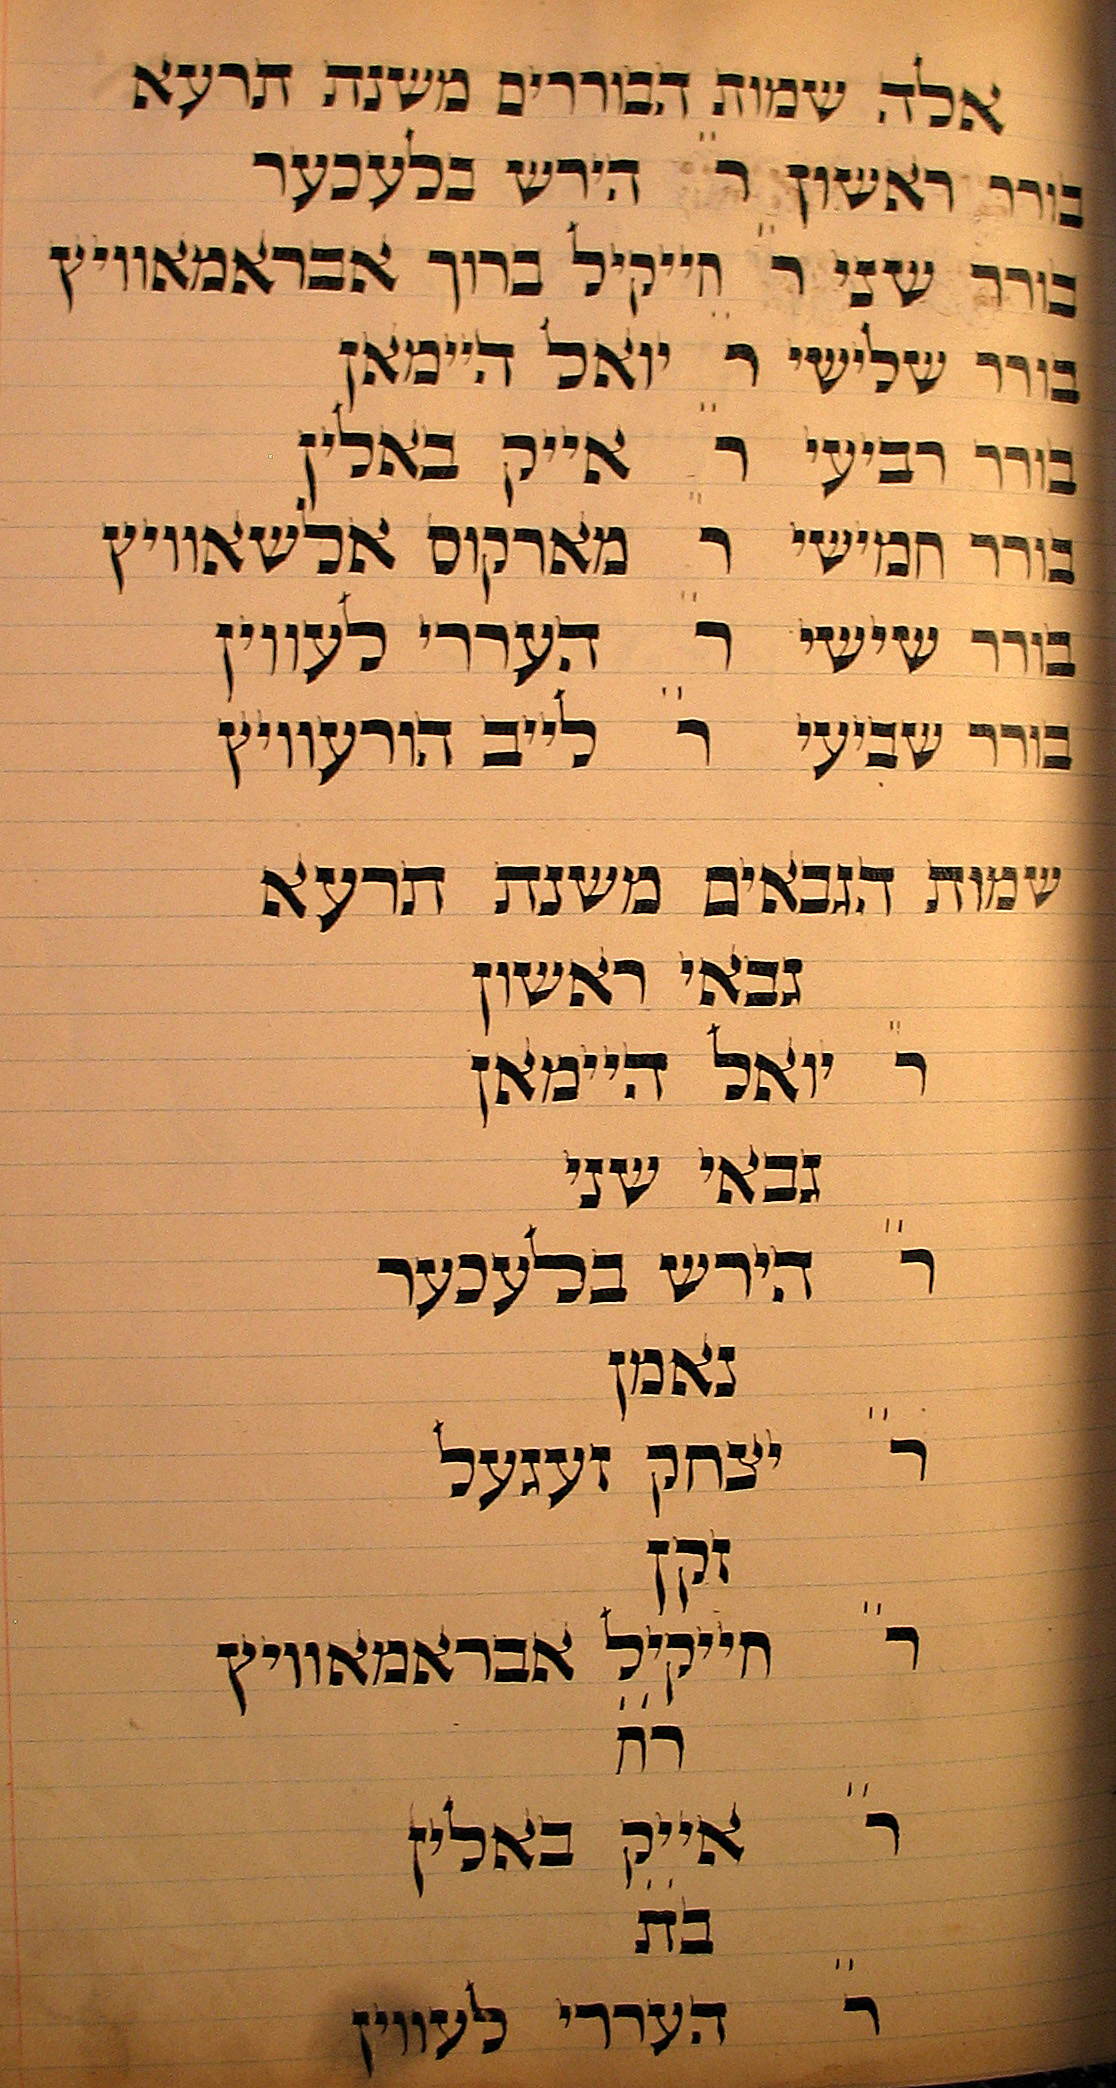 אלה שמות הבוררים משנת תרעא
בורר ראשון ר" הירש בלעכער
בורר שני ר" חייקיל ברוך אבראמאוויץ
בורר שלישי ר" יואל היימאן
בורר רביעי ר" אייק באלין
בורר חמישי ר" מארקוס אלשאוויץ
בורר שישי ר" העררי לעווין
בורר שביעי ר" לייב הורעוויץ
שמות הגבאים משנת תרעא
גבאי ראשון
ר" יואל היימאן
גבאי שני
ר" הירש בלעכער
נאמן
ר" יצחק זעגעל
זקן
ר" חייקיל אבראמאוויץ
ר"ח
ר" אייק באלין
ב"ת
ר" העררי לעווין